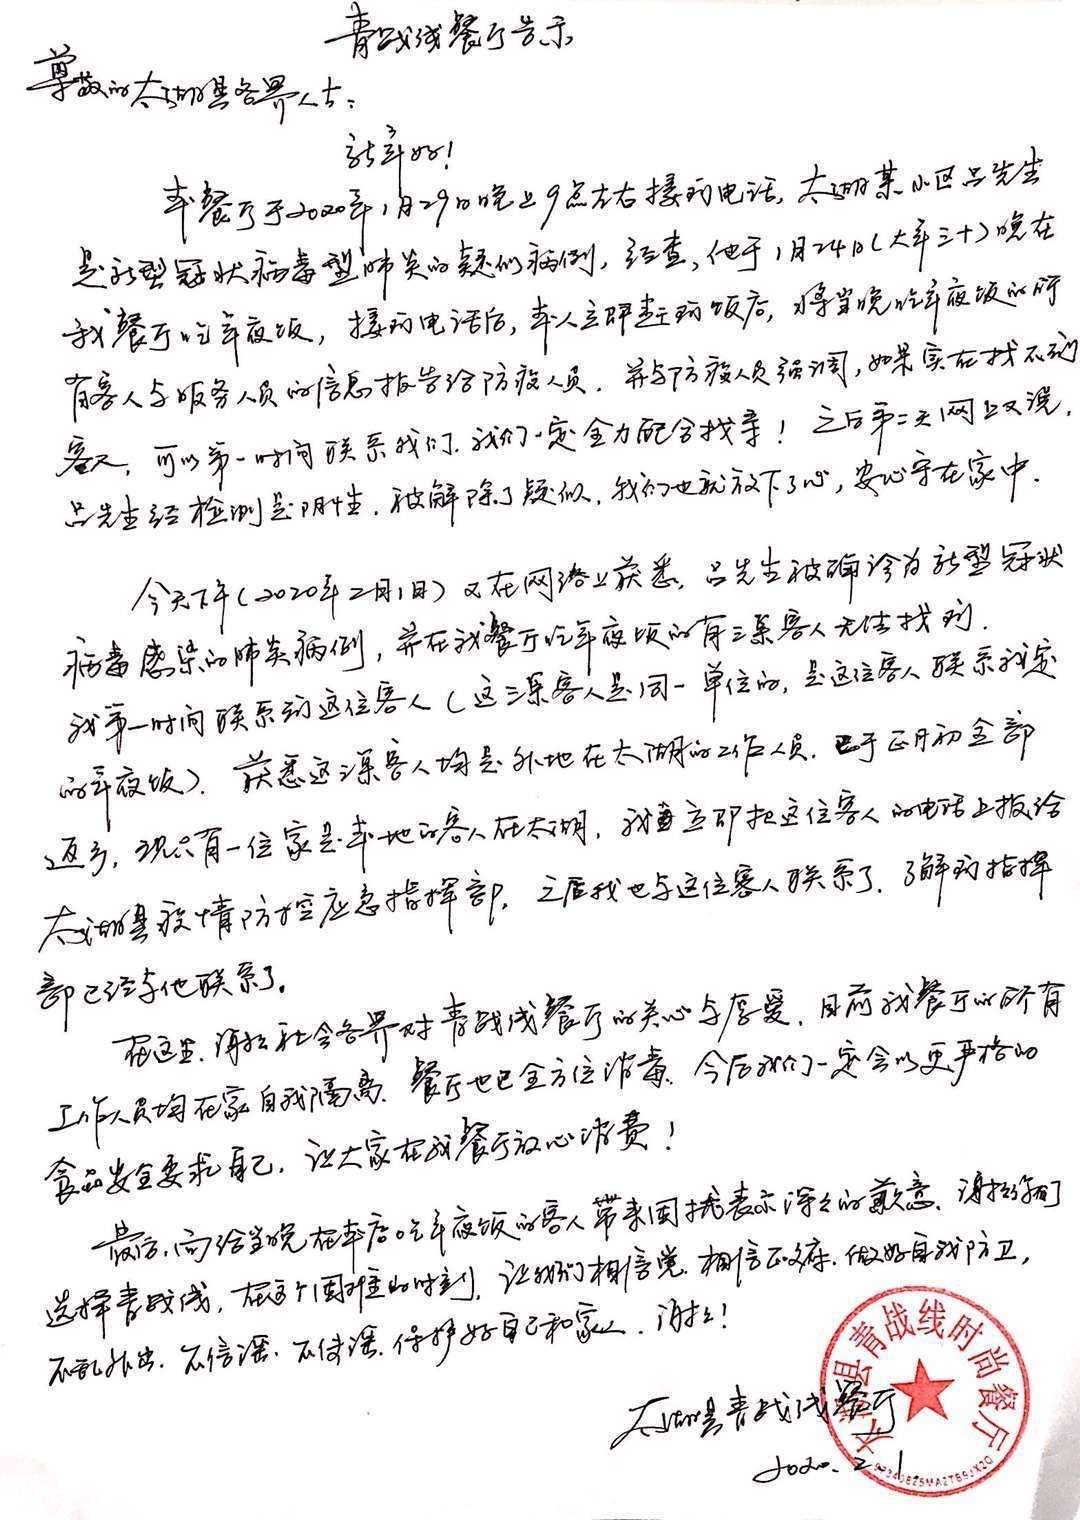 青战线餐厅告示
尊敬的太湖县各界人士：
新年好！
本餐厅于2020年1月29日晚上9点左右接到电话，太湖某小区吕先生
是新型冠状病毒型肺炎的疑似病例，经查，他于1月24日（大年三十）晚在
我餐厅吃年夜饭，接到电话后，本人立即赶到饭店，将当晚吃年夜饭的所
有客人与服务人员的信息报告给防疫人员．并与防疫人员强调，如果实在找不到
客人，可以第一时间联系我们．我们一定全力配合找寻！之后第二天网上又说，
吕先生经检测是阴性．被解除了疑似．我们也就放下了心，安心守在家中．
今天下午（2020年2月1日）又在网络上获悉．吕先生被确诊为新型冠状
病毒感染的肺炎病例，并在我餐厅吃年夜顷的有三桌客人无法找到．
我第一时间联系到这位客人（这三桌客人是同一单位的，是这位客人联系我定
的年夜饭）．获悉这三桌客人均是外地在太湖的工作人员．已于正月初全部
返乡，现只有一位家是本地的客人在太湖．我立即把这位客人的电话上报给
太湖县疫情防控应急指挥部．之后我也与这位客人联系了．了解到指挥
部已经与他联系了。
在这里．谢谢社会各界对青战线餐厅的关心与厚爱．目前我餐厅的所有
工作人员均在家自我隔离．餐厅也已全方位消毒．今后我们一定会以更严格的
食品安全要求自己．让大家在我餐厅放心消费！
最后，向给当晚在本店吃年夜饭的客人带来困扰表示深深的歉意．谢谢你们
选择青战线．在这个困难的时刻．让我们相信党．相信政府．做好自我防卫，
不乱外出．不信谣．不传谣．保护好自己和家人．谢谢！
太湖县青战线餐厅
2020.2.1.
太湖县青战线时尚餐厅
92340825MA2TB9JX2Q